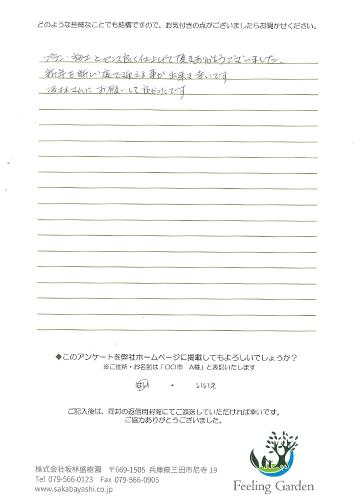 どのような些細なことでも結構ですので、お気付きの点がございましたらお聞かせください。
プラン・施工とセンス良く仕上げて頂きありがとうございました。
新年を新しい庭で迎える事が出来幸いです
お願いして良かったです
◆このアンケートを弊社ホームページに掲載してもよろしいでしょうか?
※ご住所・お名前は「○○市 A様」と表記いたします
はい ・ いいえ
ご記入後は、同封の返信用封筒にてご返送していただければ幸いです。
ご協力ありがとうございました。
株式会社坂林盛樹園 〒669-1505 兵庫県三田市尼寺 19
Tel 079-566-0123 Fax 079-566-0905
www.sakabayashi.co.jp
Feeling Garden